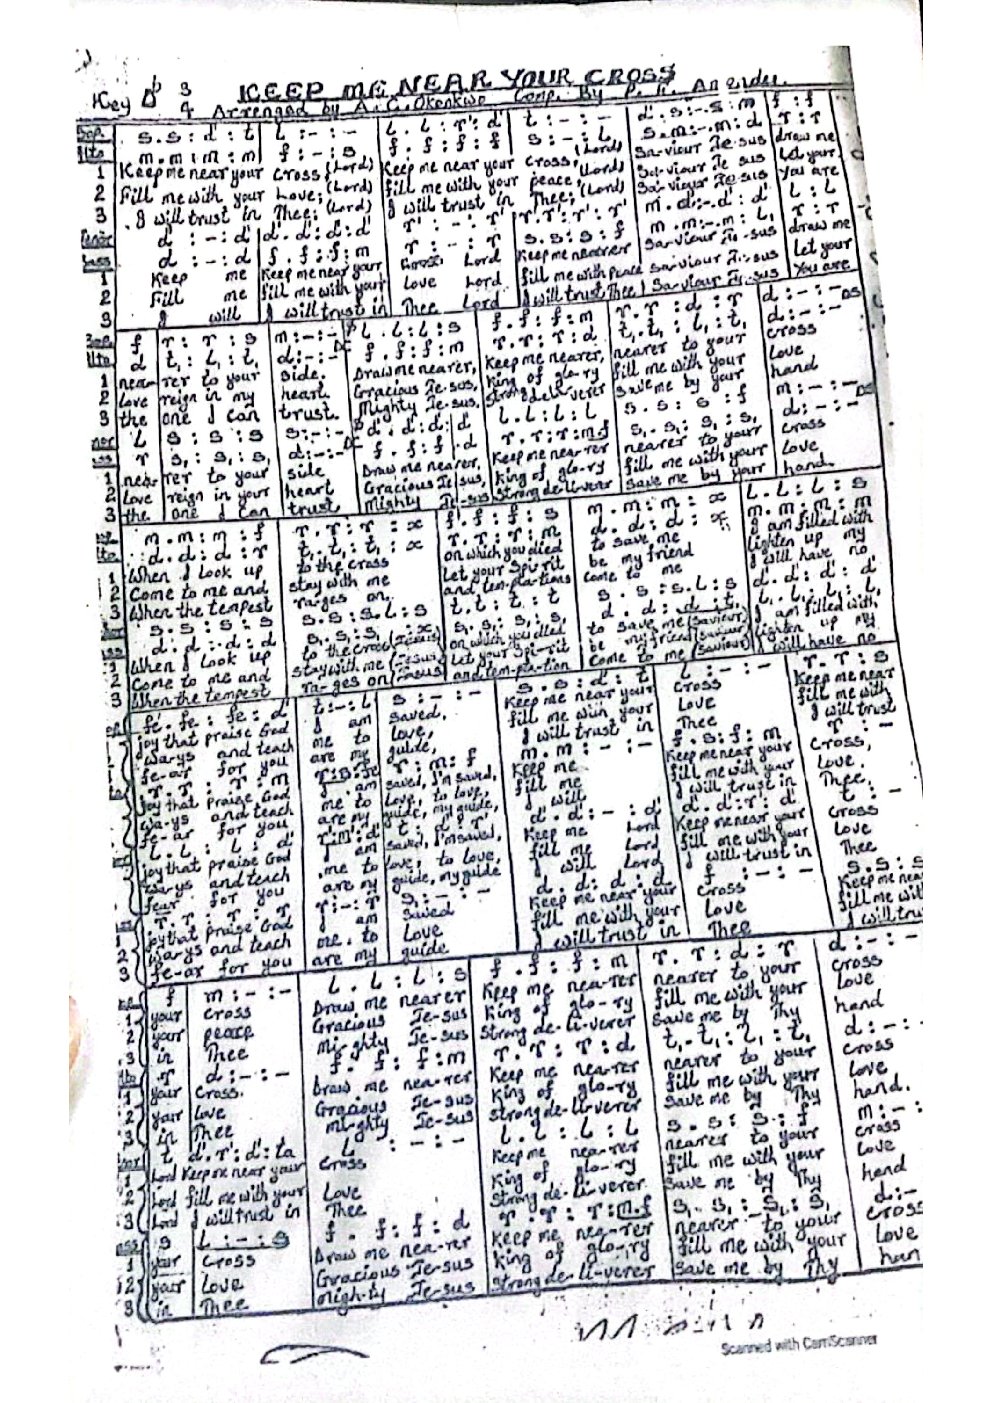 KEEP ME NEAR YOUR CROSS
Key Db 3
4 Arranged by A.C. Okonkwo Comp. By P. U.
Sop. s . s : d' : t | l : - : - | l . l : r' : d' | t : - : - | d' . s : - . s : m | f : f
Alto m . m : m : m | f : - : s | f . f : f : f | s : - : l | s . m : - . m : d | r : r
1 Keep me near your cross (Lord) Keep me near your cross, (Lord) Sa-viour Je-sus draw me
2 Fill me with your Love; (Lord) fill me with your peace, (Lord) Sa-viour Je sus Let your
3 I will trust in Thee; (Lord) I will trust in Thee; (Lord) Sa-viour Je-sus You are
Tenor d : - : d' | d' . d' : d' : d' | r' : - : r' | r' . r' : r' : r' | m . d' : - . d' : d' | l : l
Bass d : - : d | f . f : f : m | r : - : r | s . s : s : f | m . m : - . m : l, | r : r
1 Keep me Keep me near your Cross Lord Keep me nearer Sa-viour Je-sus draw me
2 Fill me fill me with your love Lord fill me with peace Sa-viour Je-sus Let your
3 I will I will trust in Thee Lord I will trust Thee Sa-viour Je-sus You are
Sop. f | r : r : s | m : - : - | l . l : l : s | f . f : f : m | r . r : d : r | d : - : - DS
Alto d | t, : l, : t, | d : - : - DC | f . f : f : m | r . r : r : d | t, . t, : l, : t, | cross
1 near- rer to your side. Draw me nearer, Keep me nearer, nearer to your
2 Love reign in my heart Gracious Je-sus, King of glo-ry fill me with your love
3 the one I can trust. Mighty Je-sus, Strong deliverer Save me by your hand
l | s : s : s | s : - : - DC | d' . d' : d' : d' | l . l : l : l | s . s : s : f | m : - : - DS
r | s, : s, : s, | d : - : - | f . f : f . d | r . r : r : m.f | s, . s, : s, : s, | d : - : -
1 near rer to your side Draw me nearer, Keep me nea-rer nearer to your cross
2 Love reign in your heart Gracious Je sus, King of glo-ry fill me with your love,
3 the one I can trust Mighty Je-sus Strong de-li-verer Save me by your hand.
m . m : m : f | r . r : r : x | f . f : f : s | m . m : m : x | l . l : l : s
d . d : d : r | t, . t, : t, : x | r . r : r : m | d . d : d : x | m . m : m : m
1 When I look up to the cross on which you died to save me I am filled with
2 Come to me and stay with me Let your Spi-rit be my friend lighten up my
3 When the tempest ra-ges on. and tem-pla-tions come to me I will have no
s . s : s : s | s . s : s . l : s | t . t : t : t | s . s : s . l : s | d' . d' : d' : d'
1 When I look up to the cross (Jesus) on which you died to save me (Saviour) I am filled with
2 Come to me and stay with me (Jesus) Let your Spi-rit be my friend (Saviour) lighten up my
3 When the tempest ra-ges on (Jesus) and tem-pla-tion come to me (Saviour) I will have no
fe . fe : fe : d' | t : - : l | s : - : - | s . s : d' : t | l : - : - | r . r : s
joy that praise God I am saved. Keep me near your cross Keep me near
wa-ys and teach me to love, fill me with your Love fill me with
fe-ar for you are my guide, I will trust in Thee I will trust
r . r : r : m | r : m : f | m . m : - : - | f . s : f : m | r : -
joy that praise God I am saved, I'm saved, Keep me Keep me near your Cross,
wa-ys and teach me to love, to love, fill me fill me with your Love.
fe-ar for you are my guide, my guide, I will I will trust in Thee.
l . l : l : d' | d . d : - : d' | d' . d' : r' : d' | t : -
joy that praise God I am saved, I'm saved, Keep me Lord Keep me near your Cross
wa-ys and teach me to love, to love, fill me Lord fill me with your Love
fear for you are my guide, my guide I will Lord I will trust in Thee
r . r : r : r | r : - : r | s : - : - | d . d : d : d | f : - : - | s . s : s
1 joy that praise God I am saved Keep me near your Cross Keep me near
2 wa-ys and teach me to love fill me with your Love fill me with
3 fe-ar for you are my guide I will trust in Thee I will trus
f | m : - : - | l . l : l : s | f . f : f : m | r . r : d : r | d : - : -
1 your cross Draw me nearer Keep me nea-rer nearer to your cross
2 your peace Gracious Je-sus King of glo-ry fill me with your love
3 in Thee mi-ghty Je-sus Strong de-li-verer save me by Thy hand
r | d : - : - | f . f : f : m | r . r : r : d | t, . t, : l, : t, | d : - :
1 your Cross. Draw me nea-rer Keep me nea-rer nearer to your cross
2 your love Gracious Je-sus King of glo-ry fill me with your love
3 in Thee mi-ghty Je-sus Strong de-li-verer save me by Thy hand.
t | d' . r' : d' : ta | l : - : - | l . l : l : l | s . s : s : f | m : - :
1 Lord Keep me near your Cross Keep me nea-rer nearer to your cross
2 Lord fill me with your Love King of glo-ry fill me with your love
3 Lord I will trust in Thee Strong de-li-verer save me by Thy hand
s | l : - : s | f . f : f : d | r . r : r : m.f | s, . s, : s, : s, | d : -
1 your cross Draw me nea-rer Keep me nea-rer nearer to your cross
2 your love Gracious Je-sus King of glo-ry fill me with your love
3 in Thee migh-ty Je-sus Strong de-li-verer save me by Thy han
Scanned with CamScanner